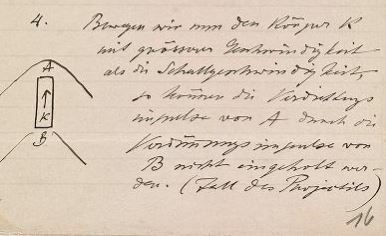 4. Bewegen wir nun den Körper K
mit grösserer Geschwindigkeit
als die Schallgeschwindigkeit,
so können die Verdichtungs
impulse von A durch die
Verdünnungsimpulse von
B nicht eingeholt wer-
den. (Fall des Projectils)
A
K
B
16